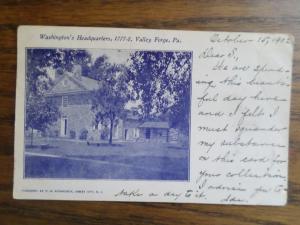 Washington's Headquarters, 1777-8, Valley Forge, Pa.
October 15, 1902
Dear S,
We are spend-
ing this beauti-
ful day here
and I felt I
must squander
my substance
on this card for
your collection.
I advise you to
take a day to it.